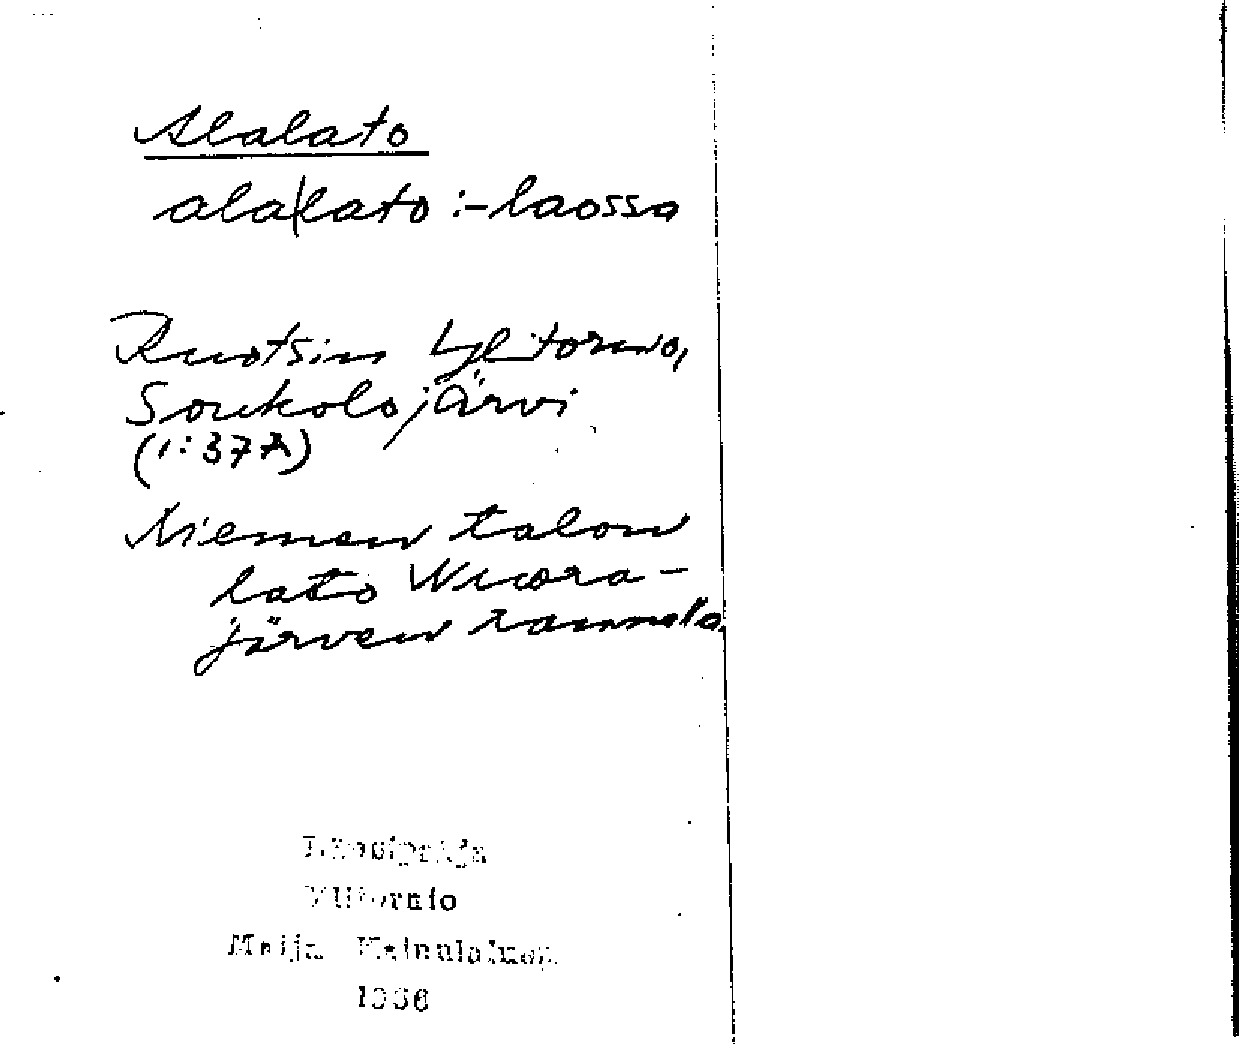 Alalato
ala|lato :-laossa
Ruotsin Ylitornio,
Soukolojärvi
(1:37A)
Niemen talon
lato Vuora-
järven rannala.
Länsipohja
Ylitornio
Maija Mainulainen
1966